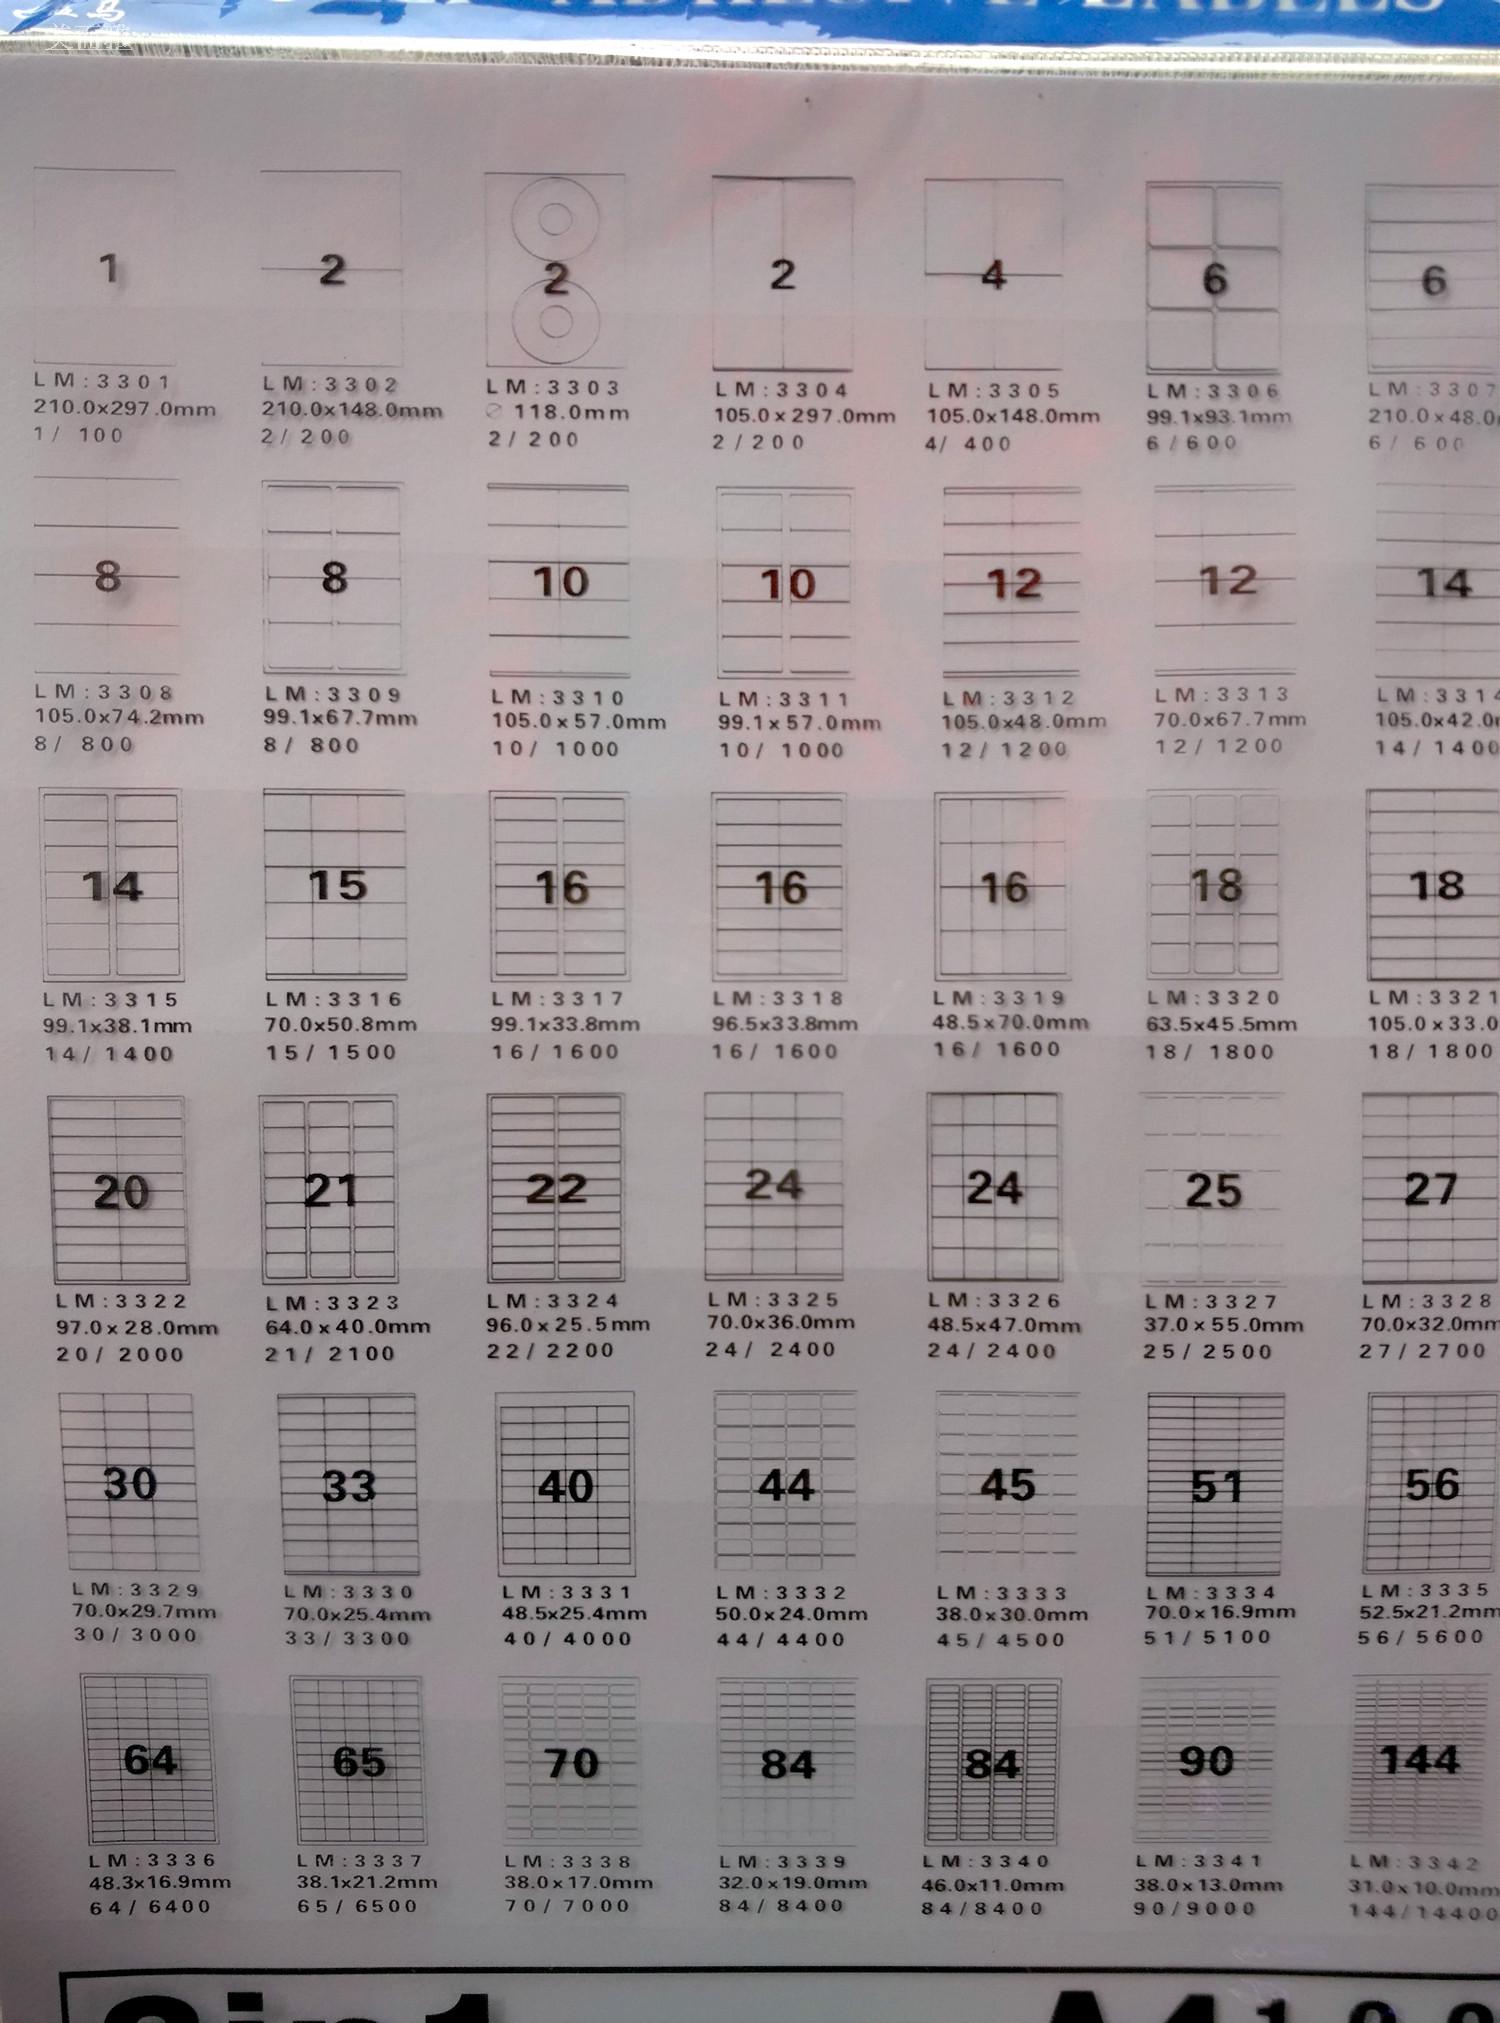 ADHESIVE LABELS
1 2 2 2 4 6 6
LM:3301 LM:3302 LM:3303 LM:3304 LM:3305 LM:3306 LM:3307
210.0x297.0mm 210.0x148.0mm ∅ 118.0mm 105.0x297.0mm 105.0x148.0mm 99.1x93.1mm 210.0x48.0
1/ 100 2/ 200 2/200 2/200 4/ 400 6/600 6/ 600
8 8 10 10 12 12 14
LM:3308 LM:3309 LM:3310 LM:3311 LM:3312 LM:3313 LM:3314
105.0x74.2mm 99.1x67.7mm 105.0x57.0mm 99.1x57.0mm 105.0x48.0mm 70.0x67.7mm 105.0x42.0
8/ 800 8/ 800 10/ 1000 10/ 1000 12/ 1200 12/ 1200 14/ 1400
14 15 16 16 16 18 18
LM:3315 LM:3316 LM:3317 LM:3318 LM:3319 LM:3320 LM:3321
99.1x38.1mm 70.0x50.8mm 99.1x33.8mm 96.5x33.8mm 48.5x70.0mm 63.5x45.5mm 105.0x33.0
14/ 1400 15/ 1500 16/ 1600 16/ 1600 16/ 1600 18/ 1800 18/ 1800
20 21 22 24 24 25 27
LM:3322 LM:3323 LM:3324 LM:3325 LM:3326 LM:3327 LM:3328
97.0x28.0mm 64.0x40.0mm 96.0x25.5mm 70.0x36.0mm 48.5x47.0mm 37.0x55.0mm 70.0x32.0mm
20/ 2000 21/ 2100 22/ 2200 24/ 2400 24/ 2400 25/ 2500 27/ 2700
30 33 40 44 45 51 56
LM:3329 LM:3330 LM:3331 LM:3332 LM:3333 LM:3334 LM:3335
70.0x29.7mm 70.0x25.4mm 48.5x25.4mm 50.0x24.0mm 38.0x30.0mm 70.0x16.9mm 52.5x21.2mm
30/ 3000 33/ 3300 40/ 4000 44/ 4400 45/ 4500 51/ 5100 56/ 5600
64 65 70 84 84 90 144
LM:3336 LM:3337 LM:3338 LM:3339 LM:3340 LM:3341 LM:3342
48.3x16.9mm 38.1x21.2mm 38.0x17.0mm 32.0x19.0mm 46.0x11.0mm 38.0x13.0mm 31.0x10.0mm
64/ 6400 65/ 6500 70/ 7000 84/ 8400 84/8400 90/9000 144/14400